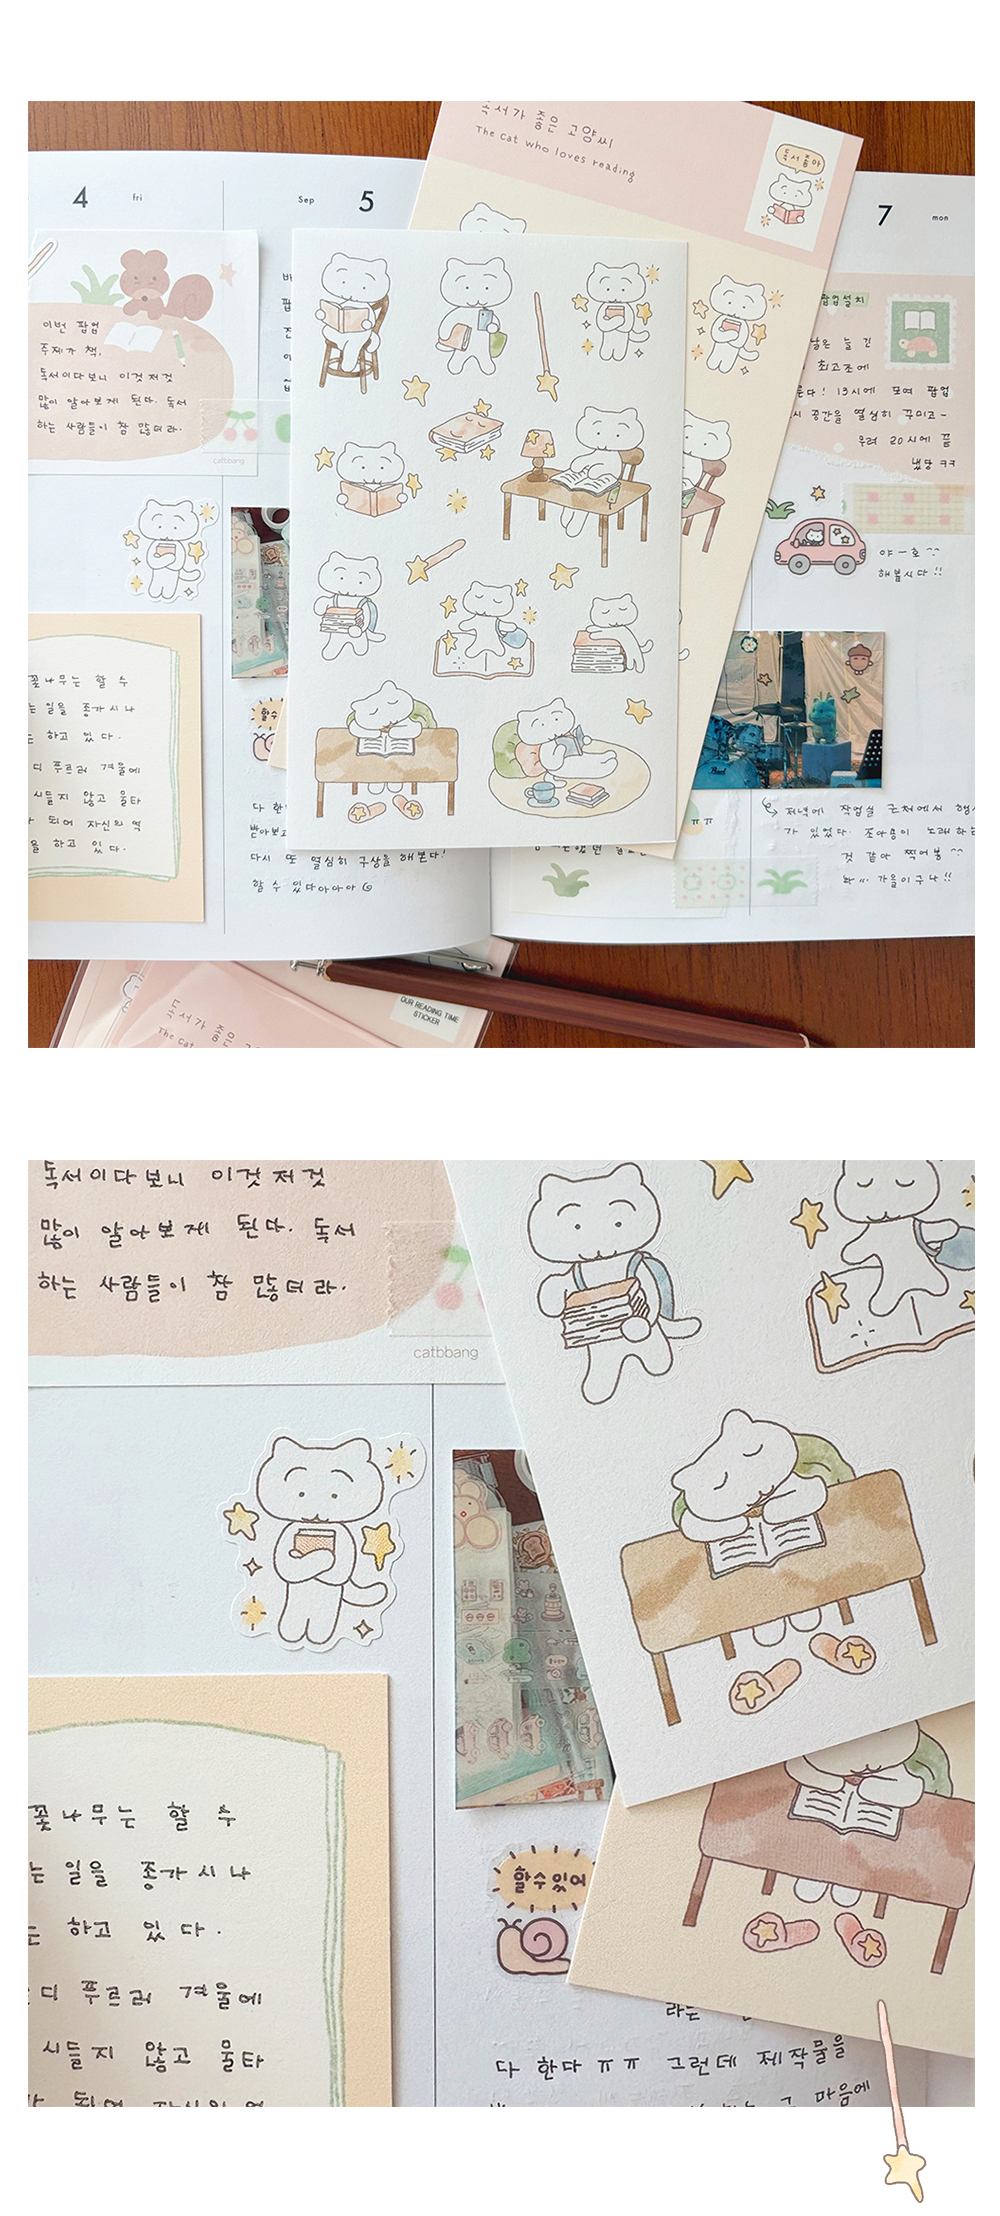 독서가 좋은 고양씨
The cat who loves reading
독서좋아
4 fri
Sep 5
7 mon
이번 팝업
주제가 책,
독서이다보니 이것저것
많이 알아보게 된다. 독서
하는 사람들이 참 많더라.
catbbang
팝업설치
최고조에
13시에 모여 팝업
공간을 열심히 꾸미고~
우려 20시에 끝
냈당 ㅋㅋ
야-호
해봅시다!!
꽃나무는 할 수
는 일을 종가시나
하고 있다.
디 푸르러 겨울에
시들지 않고 울타
되며 자신의 역
을 하고 있다.
할수
다 한다
받아보고
다시 또 열심히 구상을 해본다!
할 수 있다아아아
ㅠㅠ
저녁에 작업실 근처에서 행
가 있었다.
것 같아 찍어봄
가을이구나!!
독서가 좋은
The cat
OUR READING TIME
STICKER
독서이다보니 이것저것
많이 알아보게 된다. 독서
하는 사람들이 참 많더라.
catbbang
꽃나무는 할 수
는 일을 종가시나
하고 있다.
디 푸르러 겨울에
시들지 않고 울타
할수있어
라는
다 한다 ㅠㅠ 그런데 제작물을
그 마음에